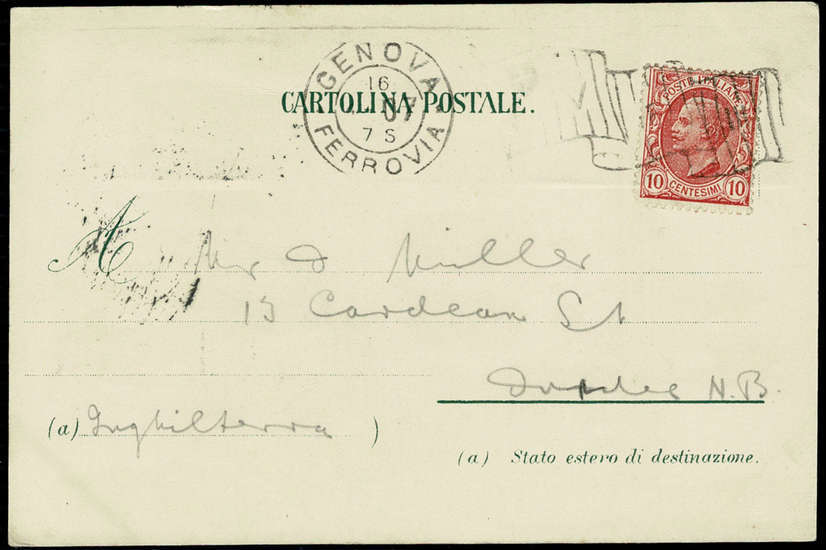 GENOVA
16
07
7 S
FERROVIA
CARTOLINA POSTALE.
POSTE ITALIANE
10 CENTESIMI 10
A Mr D Miller
13 Cardean St
Dundee N.B.
(a) Inghilterra )
(a) Stato estero di destinazione.